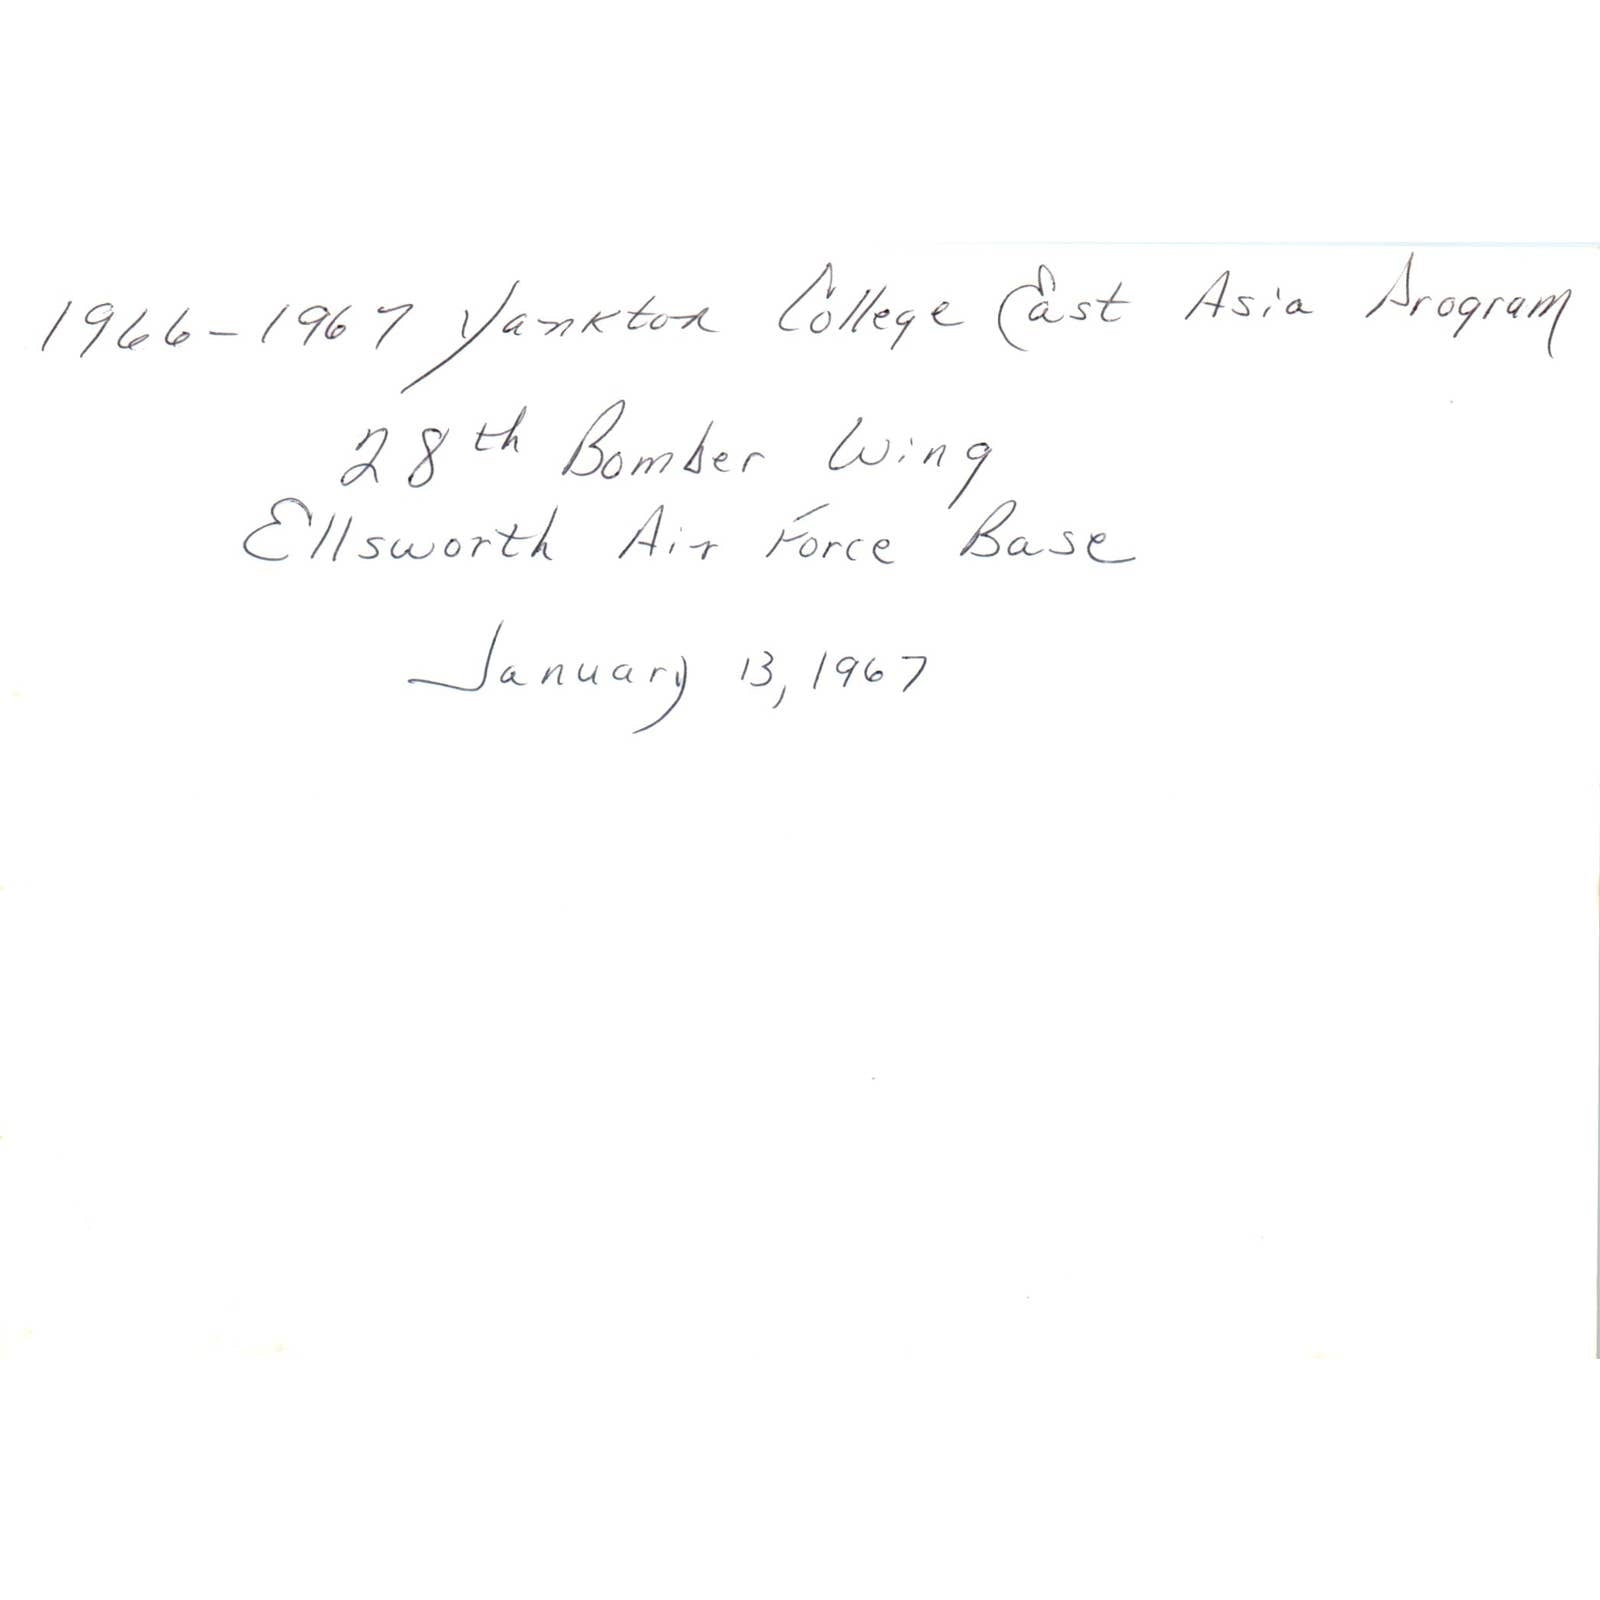 1966-1967 Yankton College East Asia Program
28th Bomber Wing
Ellsworth Air Force Base
January 13, 1967